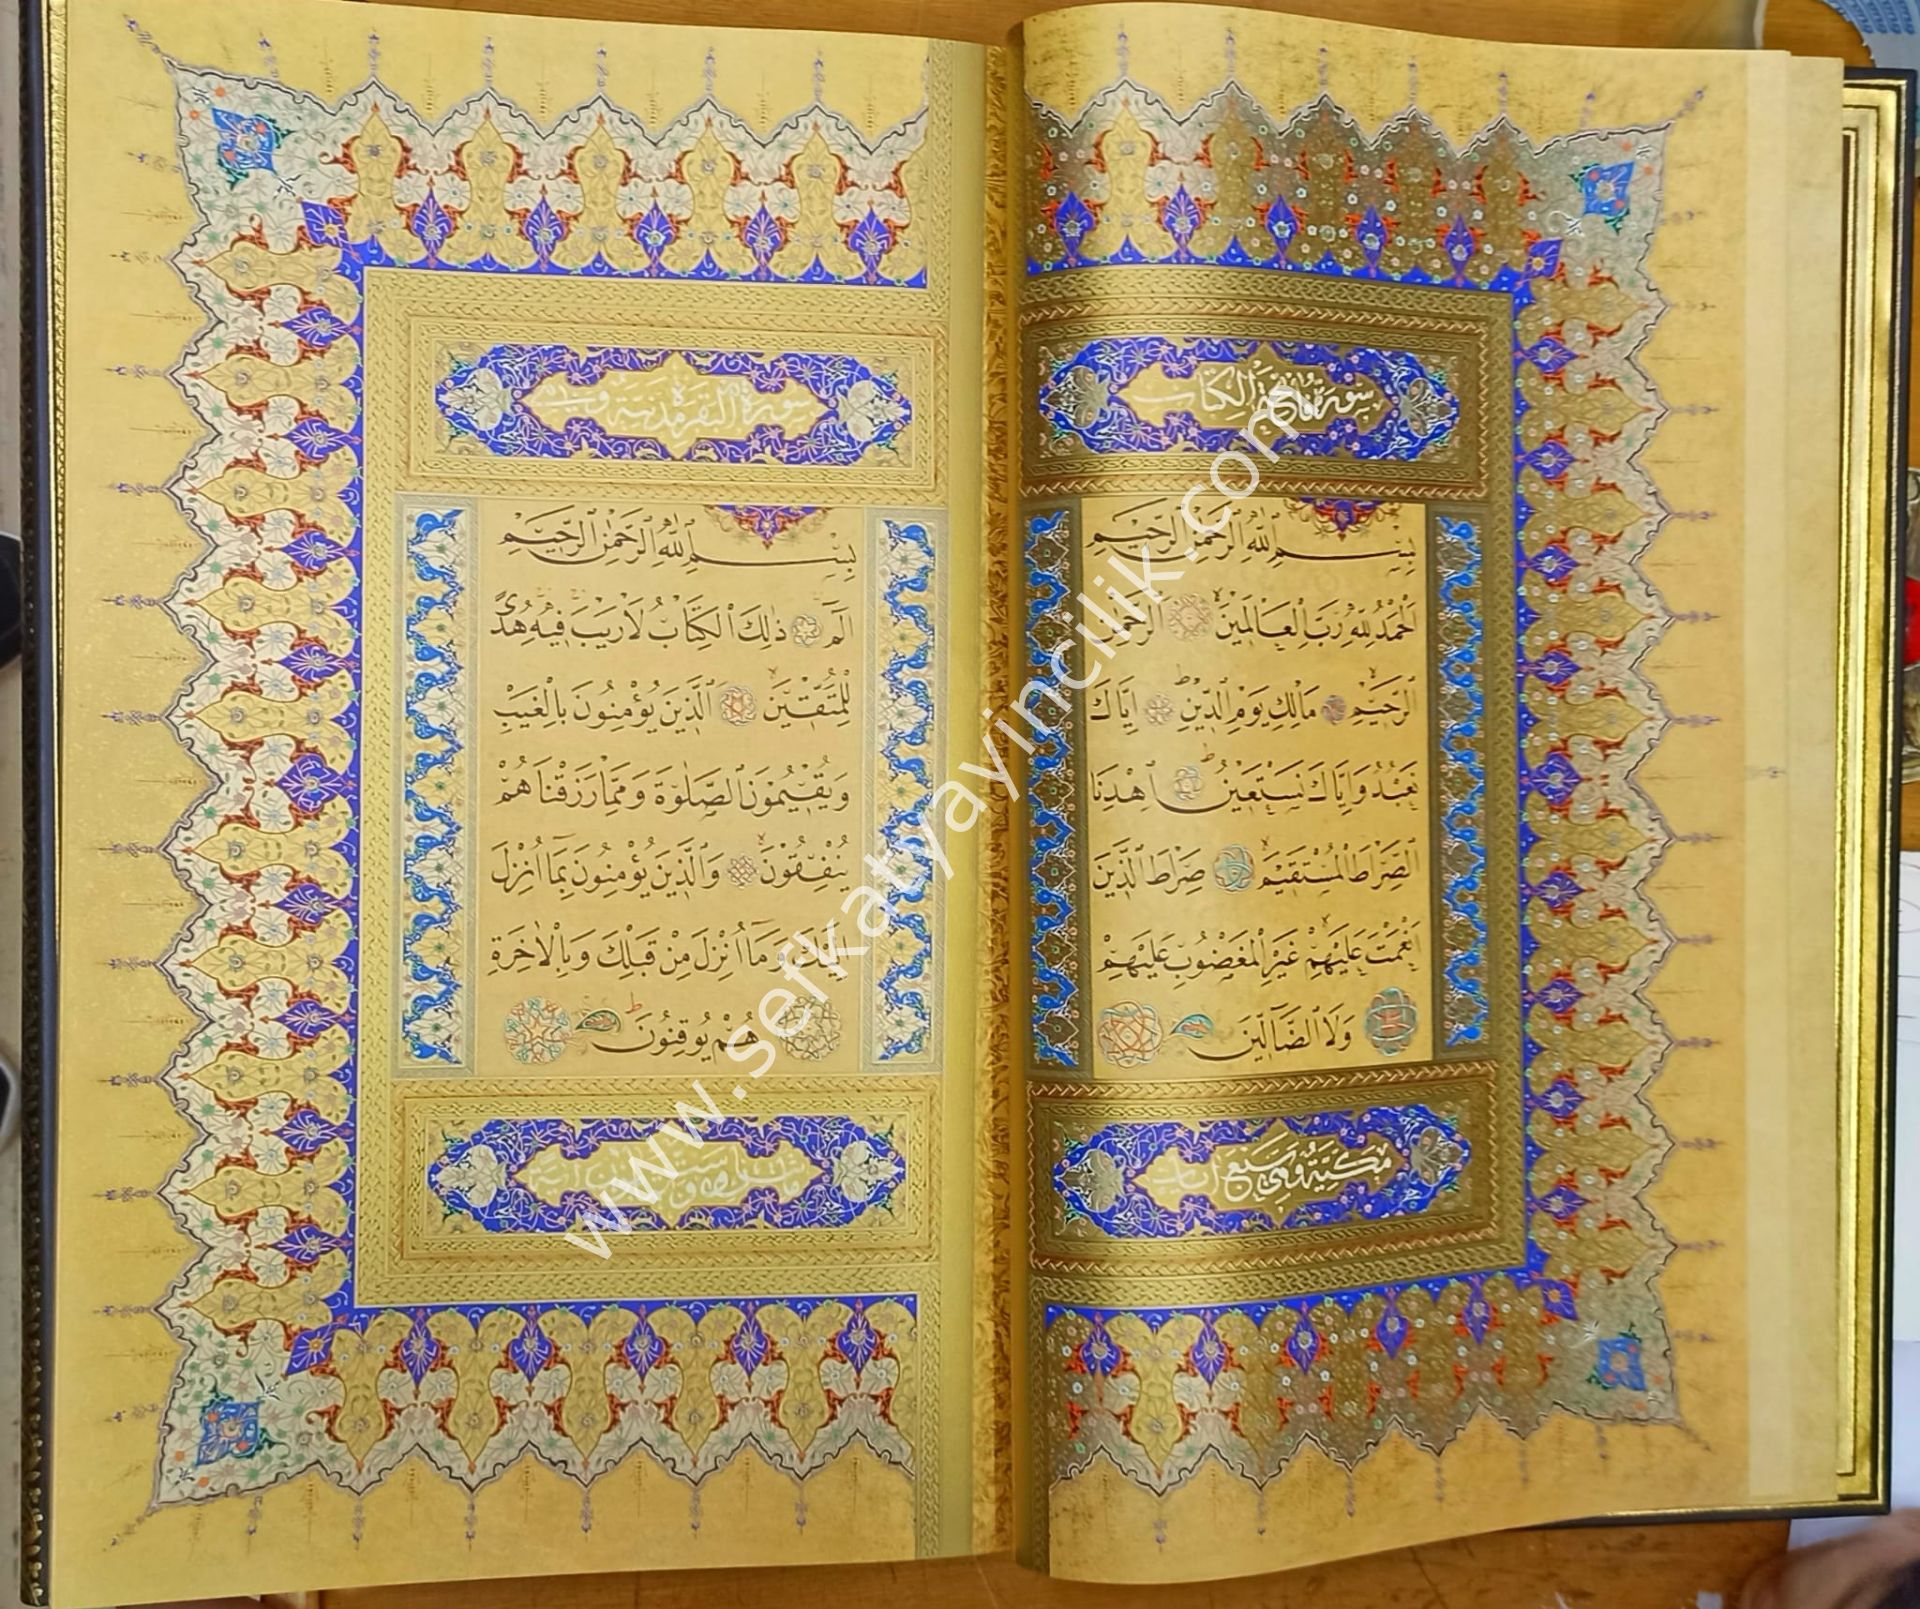 سورة فاتحة الكتاب
بِسْمِ ٱللّٰهِ ٱلرَّحْمٰنِ ٱلرَّحِيمِ
اَلْحَمْدُ لِلّٰهِ رَبِّ الْعَالَمِينَۙ اَلرَّحْمٰنِ
الرَّحِيمِۙ مَالِكِ يَوْمِ الدِّينِۜ اِيَّاكَ
نَعْبُدُ وَاِيَّاكَ نَسْتَعِينُۜ اِهْدِنَا
الصِّرَاطَ الْمُسْتَقِيمَۙ صِرَاطَ الَّذِينَ
اَنْعَمْتَ عَلَيْهِمْۙ غَيْرِ الْمَغْضُوبِ عَلَيْهِمْ
وَلَا الضَّٓالِّينَ
مكية وهي سبع ايات
سورة البقرة مدنية وهي
بِسْمِ ٱللّٰهِ ٱلرَّحْمٰنِ ٱلرَّحِيمِ
الٓمٓۚ ذٰلِكَ الْكِتَابُ لَا رَيْبَۚ فِيهِۚ هُدًى
لِلْمُتَّقِينَۙ اَلَّذِينَ يُؤْمِنُونَ بِالْغَيْبِ
وَيُقِيمُونَ الصَّلٰوةَ وَمِمَّا رَزَقْنَاهُمْ
يُنْفِقُونَۙ وَالَّذِينَ يُؤْمِنُونَ بِمَٓا اُنْزِلَ
اِلَيْكَ وَمَٓا اُنْزِلَ مِنْ قَبْلِكَۚ وَبِالْاٰخِرَةِ
هُمْ يُوقِنُونَۜ
www.sefkatyayincilik.com